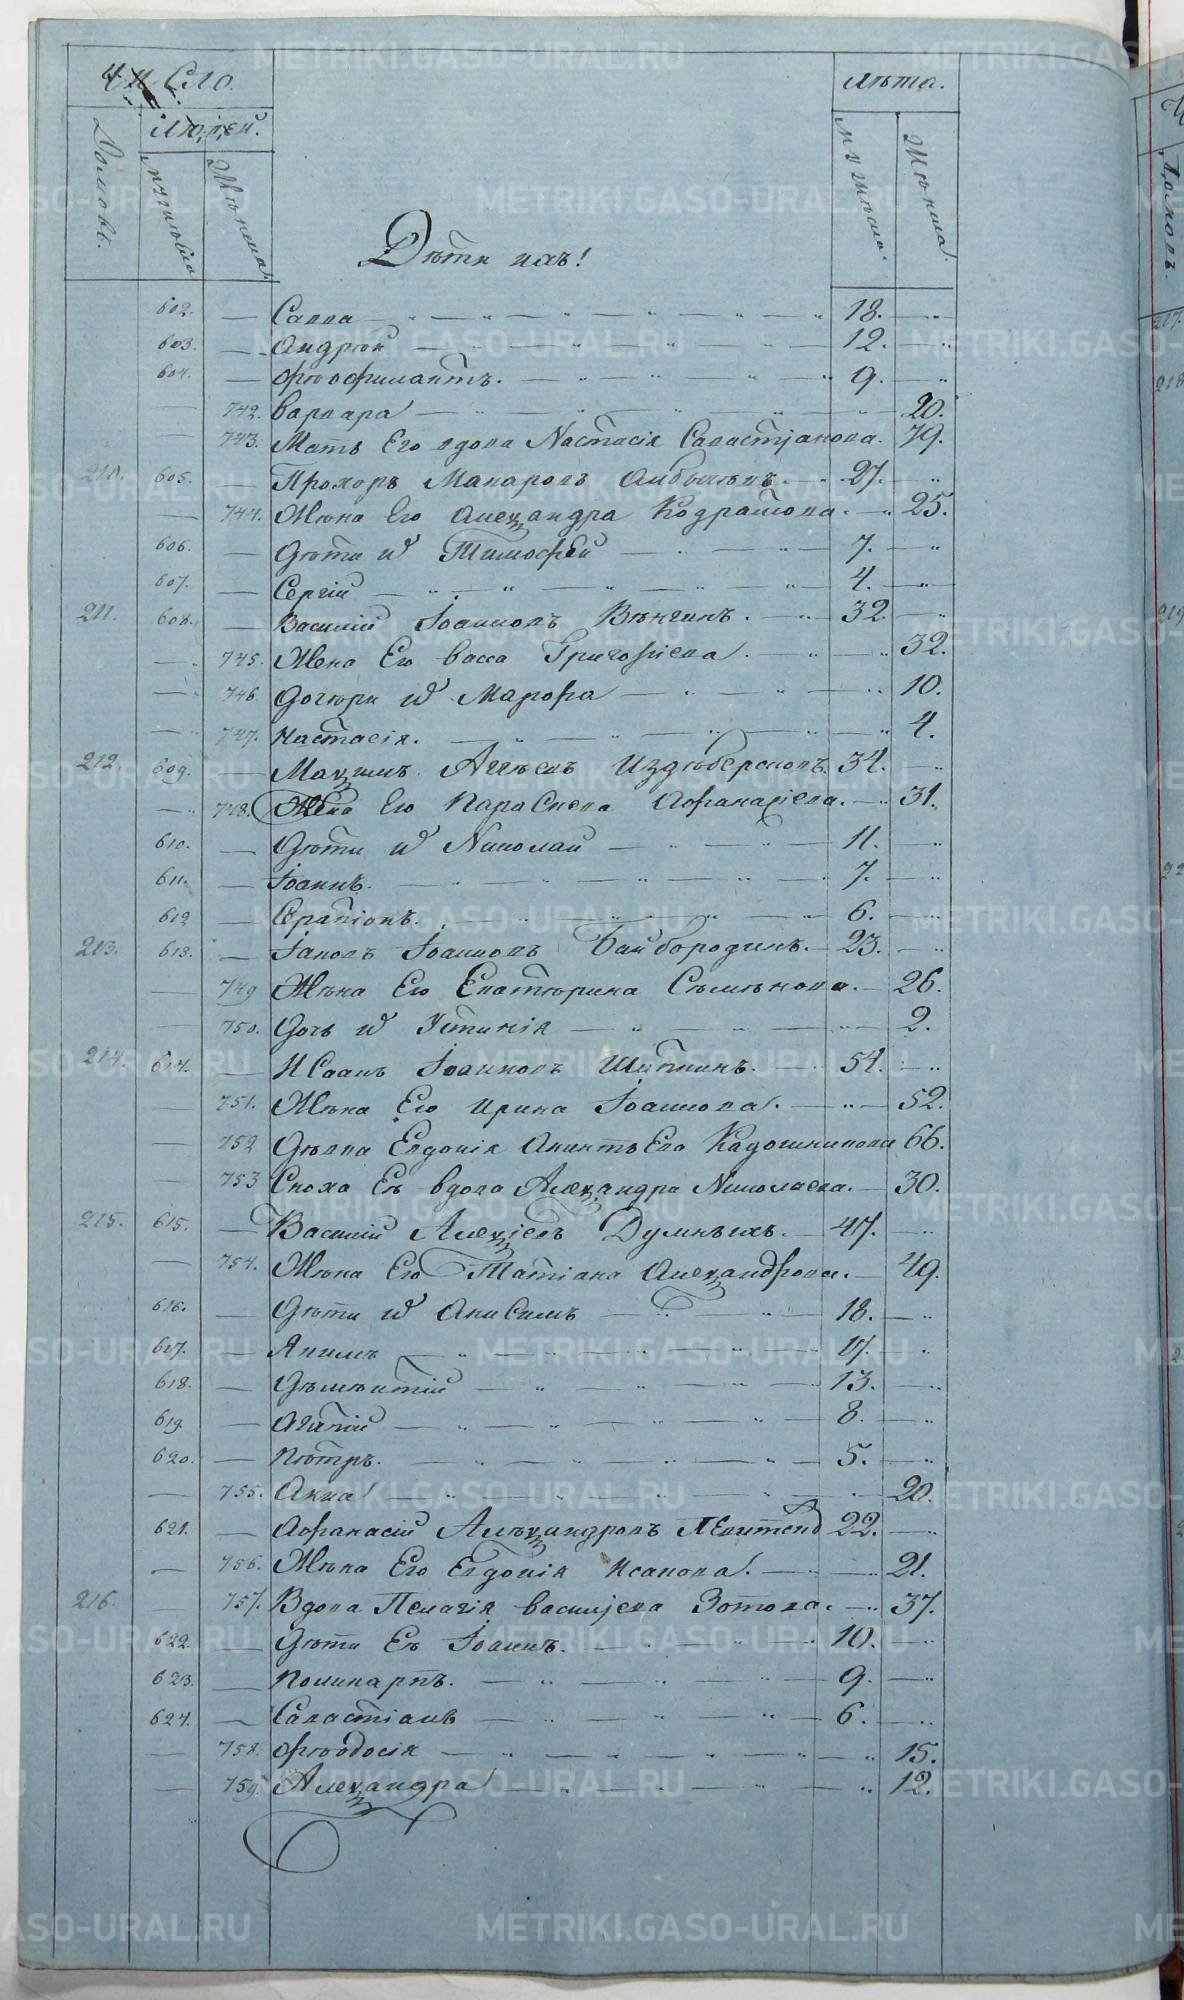 Число
Людей.
Домовъ.
Мужеска
Женска
лѣта.
Мужеска.
Женска.
Дѣти ихъ!
602. — Савва — 18. —
603. — Андрей — 12. —
604. — Феофилактъ. — 9. —
— 742. варвара — 20.
— 743. Мать Его вдова Настасія Савастіанова. 79.
210. 605. — Прохоръ Макаровъ 27. —
— 744. Жена Его Александра Кодратова. — 25.
606. — Дѣти Тимофей — 7. —
607. — Сергій — 4. —
211. 608. — Василій Іоанновъ Вѣнгинъ. — 32. —
— 745. Жена Его васса Григорьева. — 32.
— 746. Дочери Марфа — 10.
— 747. Настасія. — 4.
212. 609. — Максимъ Аггѣевъ Издеберсковъ. 34. —
— 748. Жена Его Парасковa Афанасіева. — 31.
610. — Дѣти Николай — 11. —
611. — Іоаннъ. — 7. —
612 — Серапіонъ. — 6. —
213. 613. — Іаковъ Іоанновъ Байбородинъ. — 23. —
— 749 Жена Его Екатерина Сѣменова. — 26.
— 750. Дочь Устинія — 2.
214. 614. — Исаакъ Іоанновъ 54. —
— 751. Жена Его Ирина Іоаннова. — 52.
— 752 Дѣвка Евдокія Кадошникова 66.
— 753 Сноха Ев вдова Александра Николаева. — 30.
215. 615. — Василій Алексіевъ Думныхъ. — 47. —
— 754. Жена Его Татіана Александрова. — 49.
616. — Дѣти Анисимъ — 18. —
617. — Якимъ — 17. —
618. — Дѣмѣнтій — 13. —
619 — Агапій — 8. —
620. — Петръ. — 5. —
— 755. Анна — 20.
621. — Афанасій Александровъ 22. —
— 756. Жена Его Евдокія Исакова. — 21.
216. — 757. Вдова Пелагія васильева Зотова. — 37.
622. — Дѣти Ев Іоаннъ. — 10. —
623. — Поликарпъ. — 9. —
624. — Савастіанъ — 6. —
— 758. Феодосія — 15.
— 759. Александра — 12.
METRIKI.GASO-URAL.RU